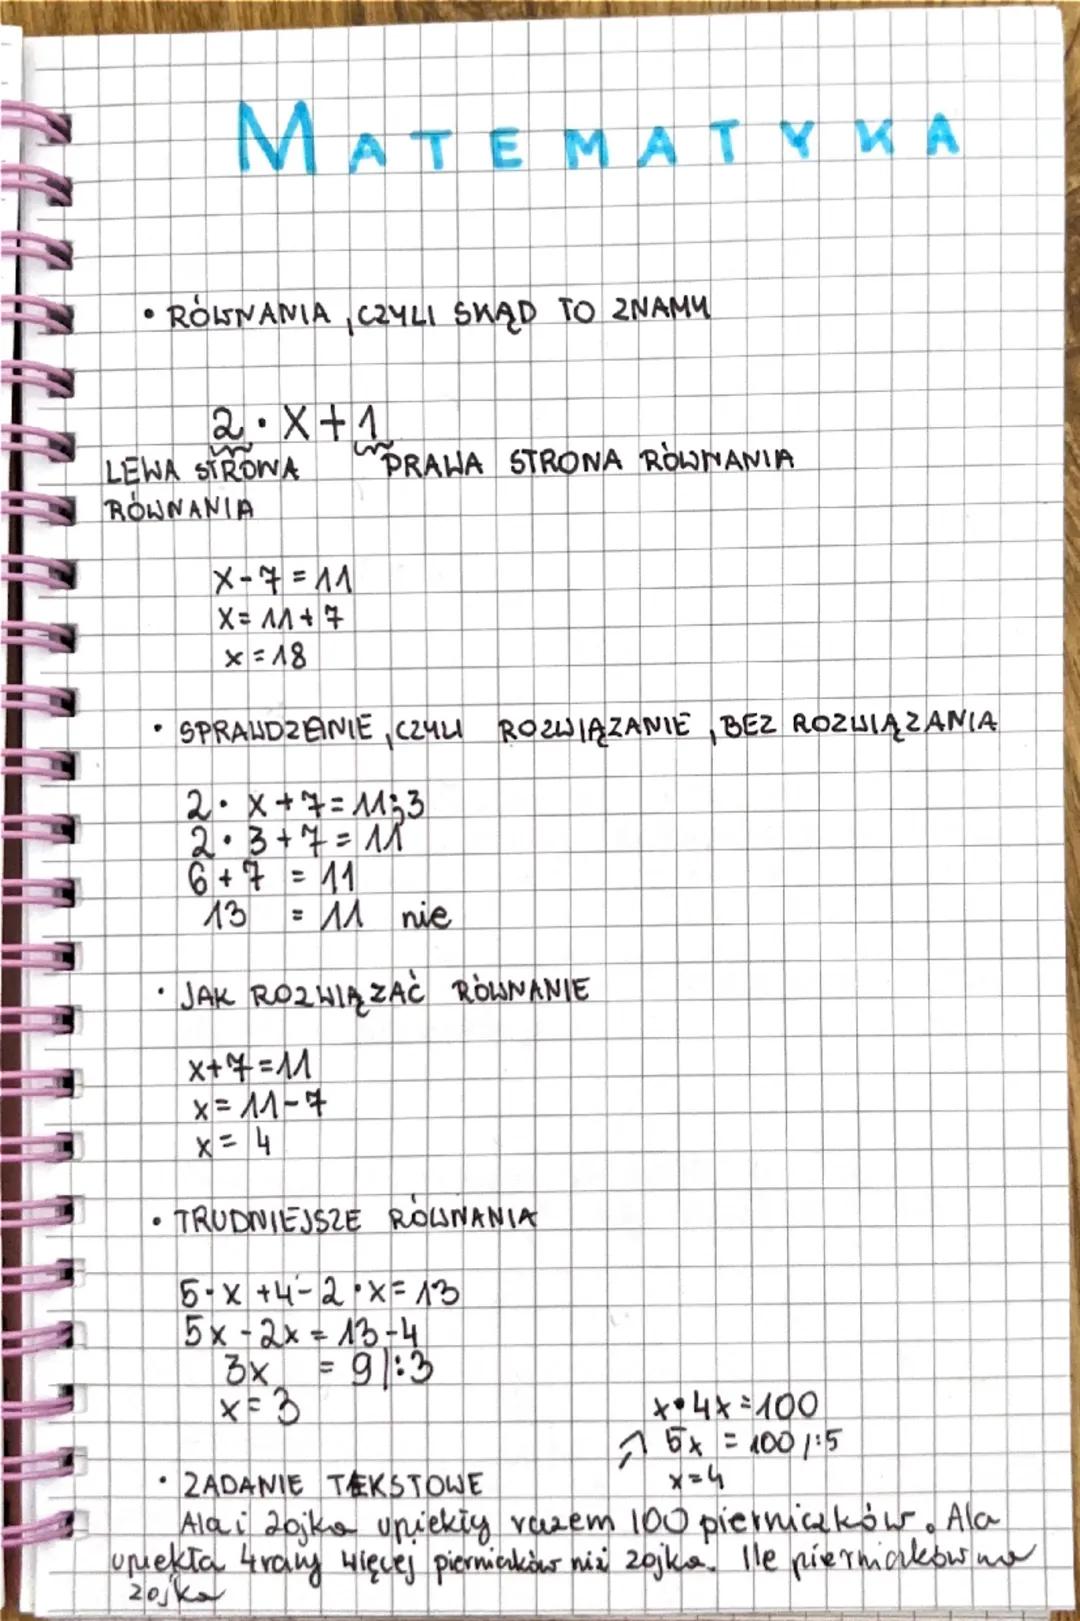 MATEMATYKA
• RÓWNANIA, CZYLI SKĄD TO ZNAMY
2 · X + 1
LEWA STRONA PRAWA STRONA RÓWNANIA
RÓWNANIA
X - 7 = 11
X = 11 + 7
x = 18
• SPRAWDZENIE, CZYLI ROZWIĄZANIE, BEZ ROZWIĄZANIA
2 · x + 7 = 11; 3
2 · 3 + 7 = 11
6 + 7 = 11
13 = 11 nie
• JAK ROZWIĄZAĆ RÓWNANIE
x + 7 = 11
x = 11 - 7
x = 4
• TRUDNIEJSZE RÓWNANIA
5 · x + 4 - 2 · x = 13
5x - 2x = 13 - 4
3x = 9 /:3
x = 3
x • 4x = 100
↗ 5x = 100 /:5
x = 4
• ZADANIE TEKSTOWE
Ala i Zojka upiekły razem 100 pierniczków. Ala
upiekła 4 razy więcej pierniaków niż zojka. Ile pierniaków ma
zojka